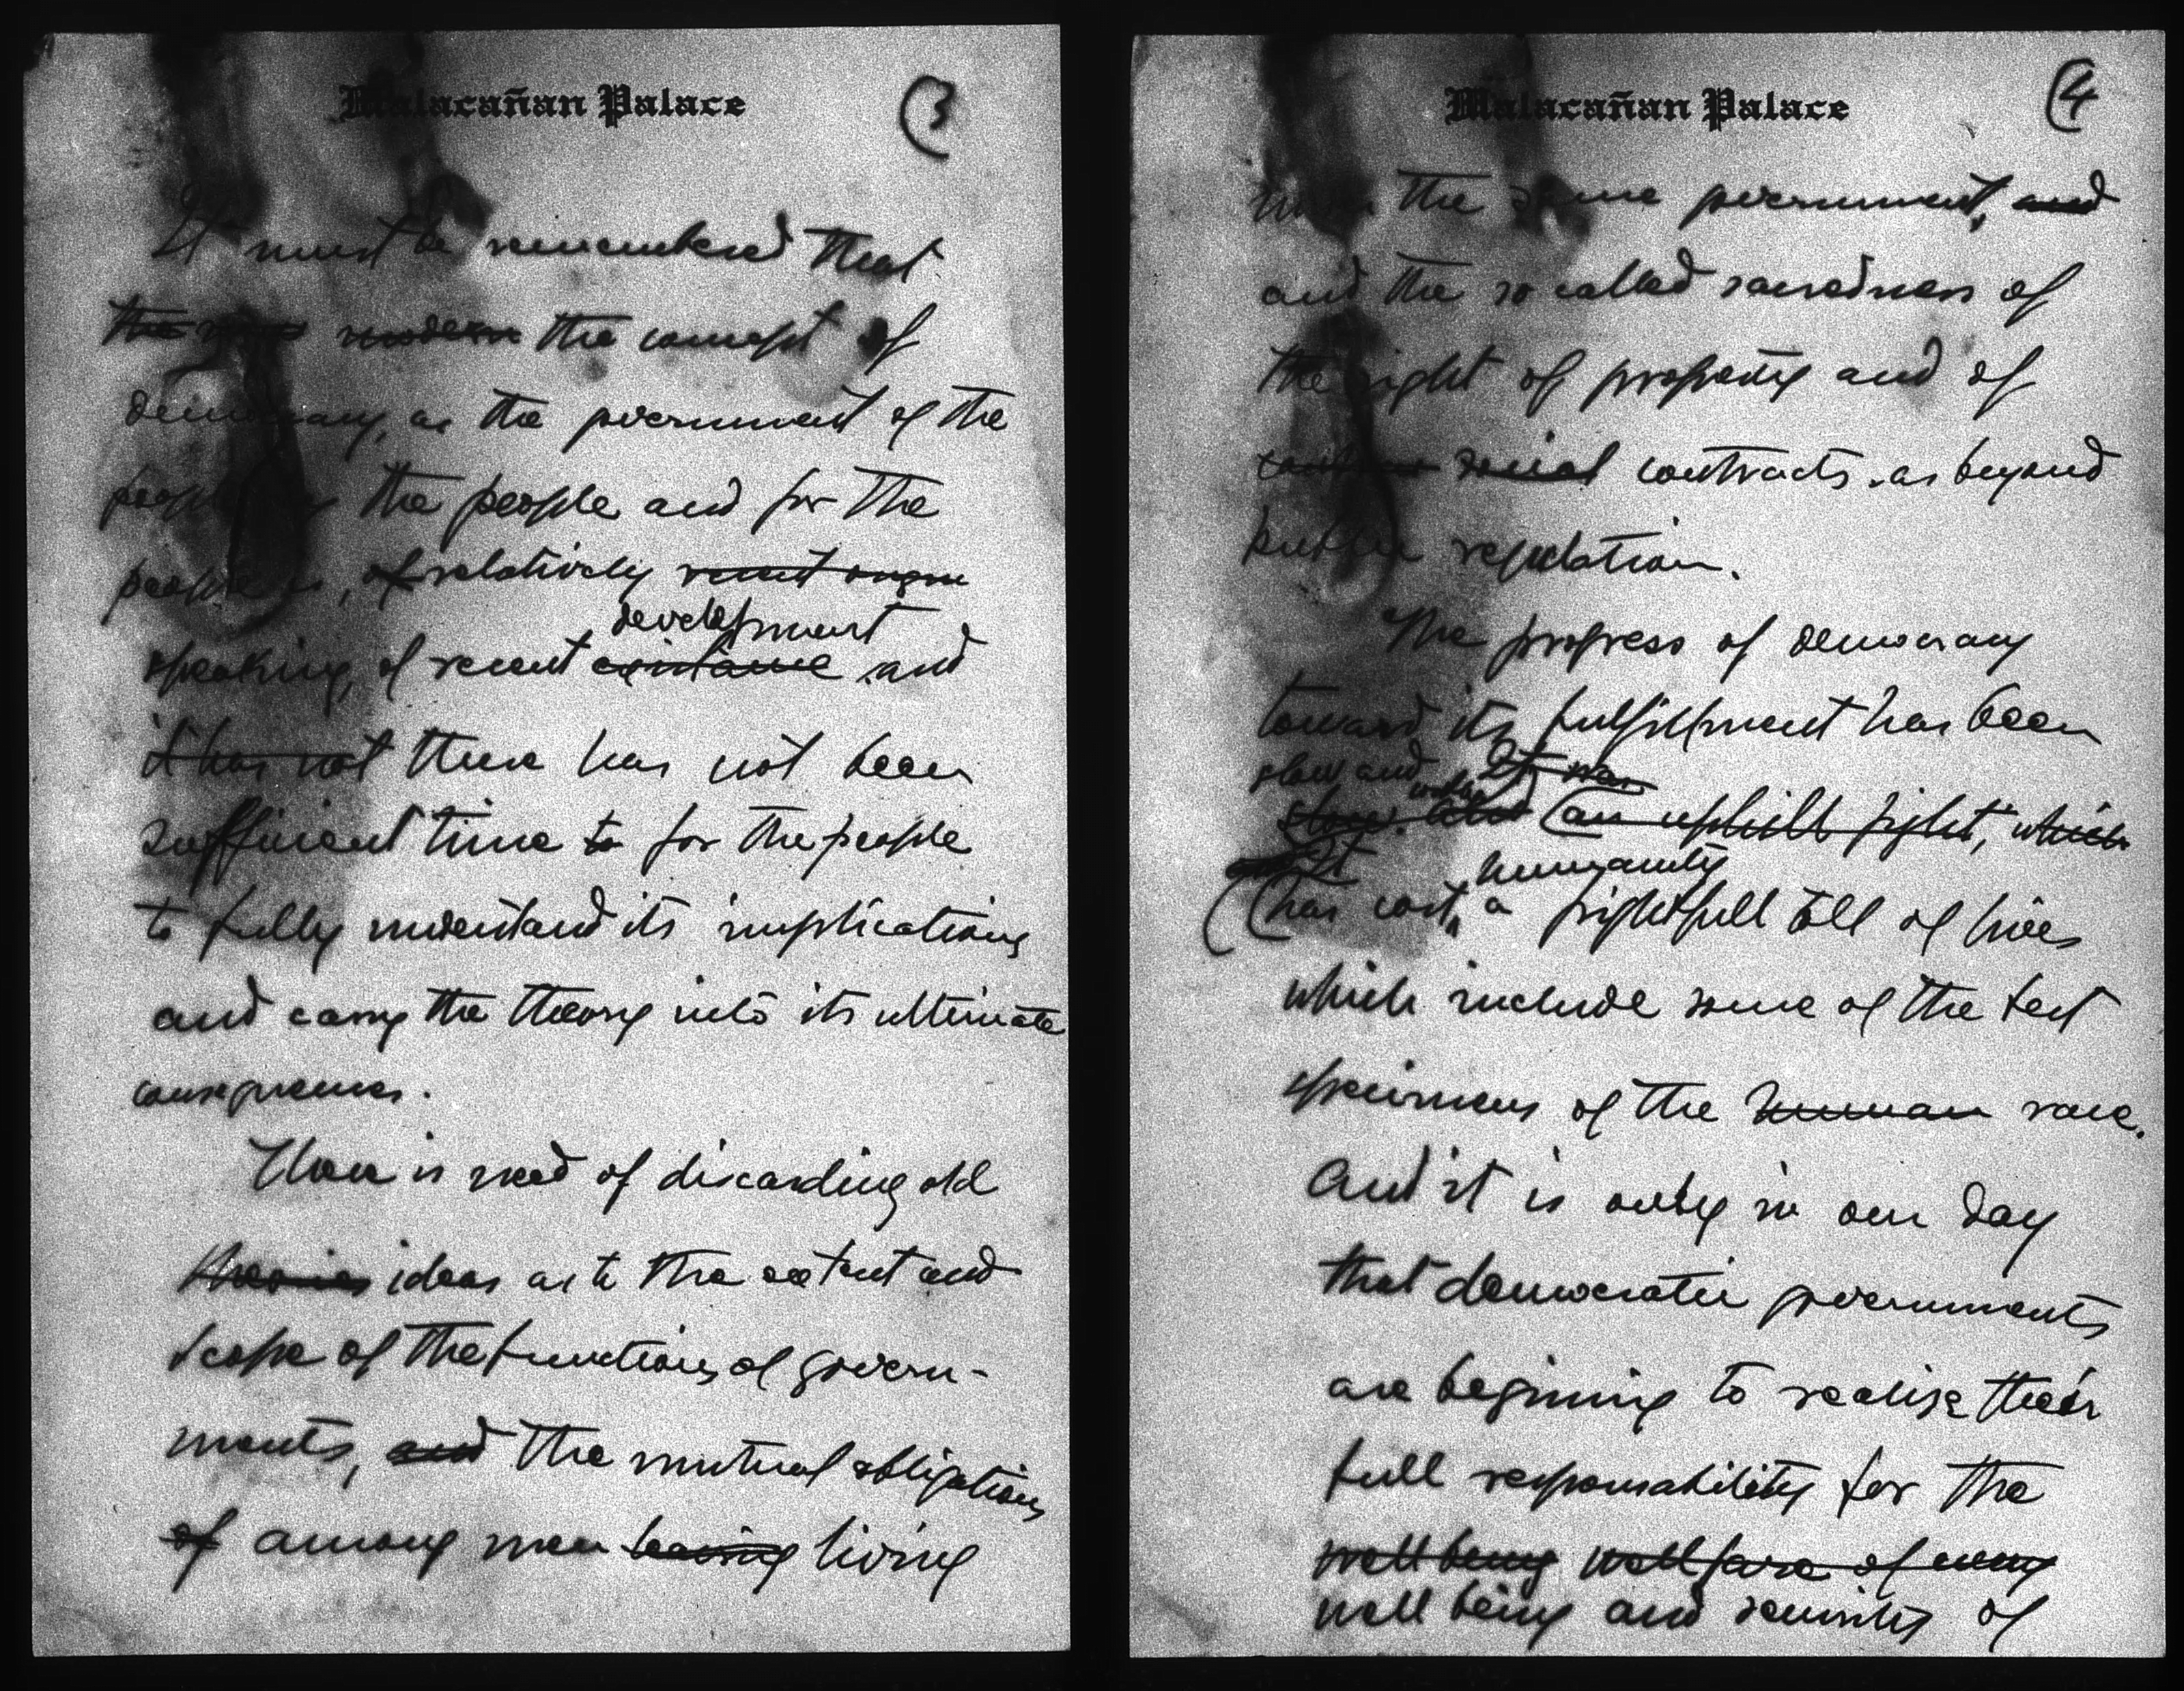 Malacañan Palace
(3
It must be remembered that
the modern the concept of
democracy, as the government of the
people by the people and for the
people is, of relatively recent origin
development
speaking, of recent existence and
it has not there has not been
sufficient time to for the people
to fully understand its implications
and carry the theory into its ultimate
consequences.
There is need of discarding old
theories ideas as to the extent and
scope of the functions of govern-
ments, and the mutual obligations
of among men leaving living
Malacañan Palace
(4
under the same government, and
and the so called sacredness of
the right of property and of
social contracts as beyond
public regulation.
The progress of democracy
toward its fulfillment has been
slow and It was
slow. (an uphill fight, which
It humanity
(has cost a frightfull toll of lives
which include some of the best
specimens of the human race.
And it is only in our day
that democratic governments
are beginning to realise their
full responsability for the
wellbeing wellfare of every
well being and security of